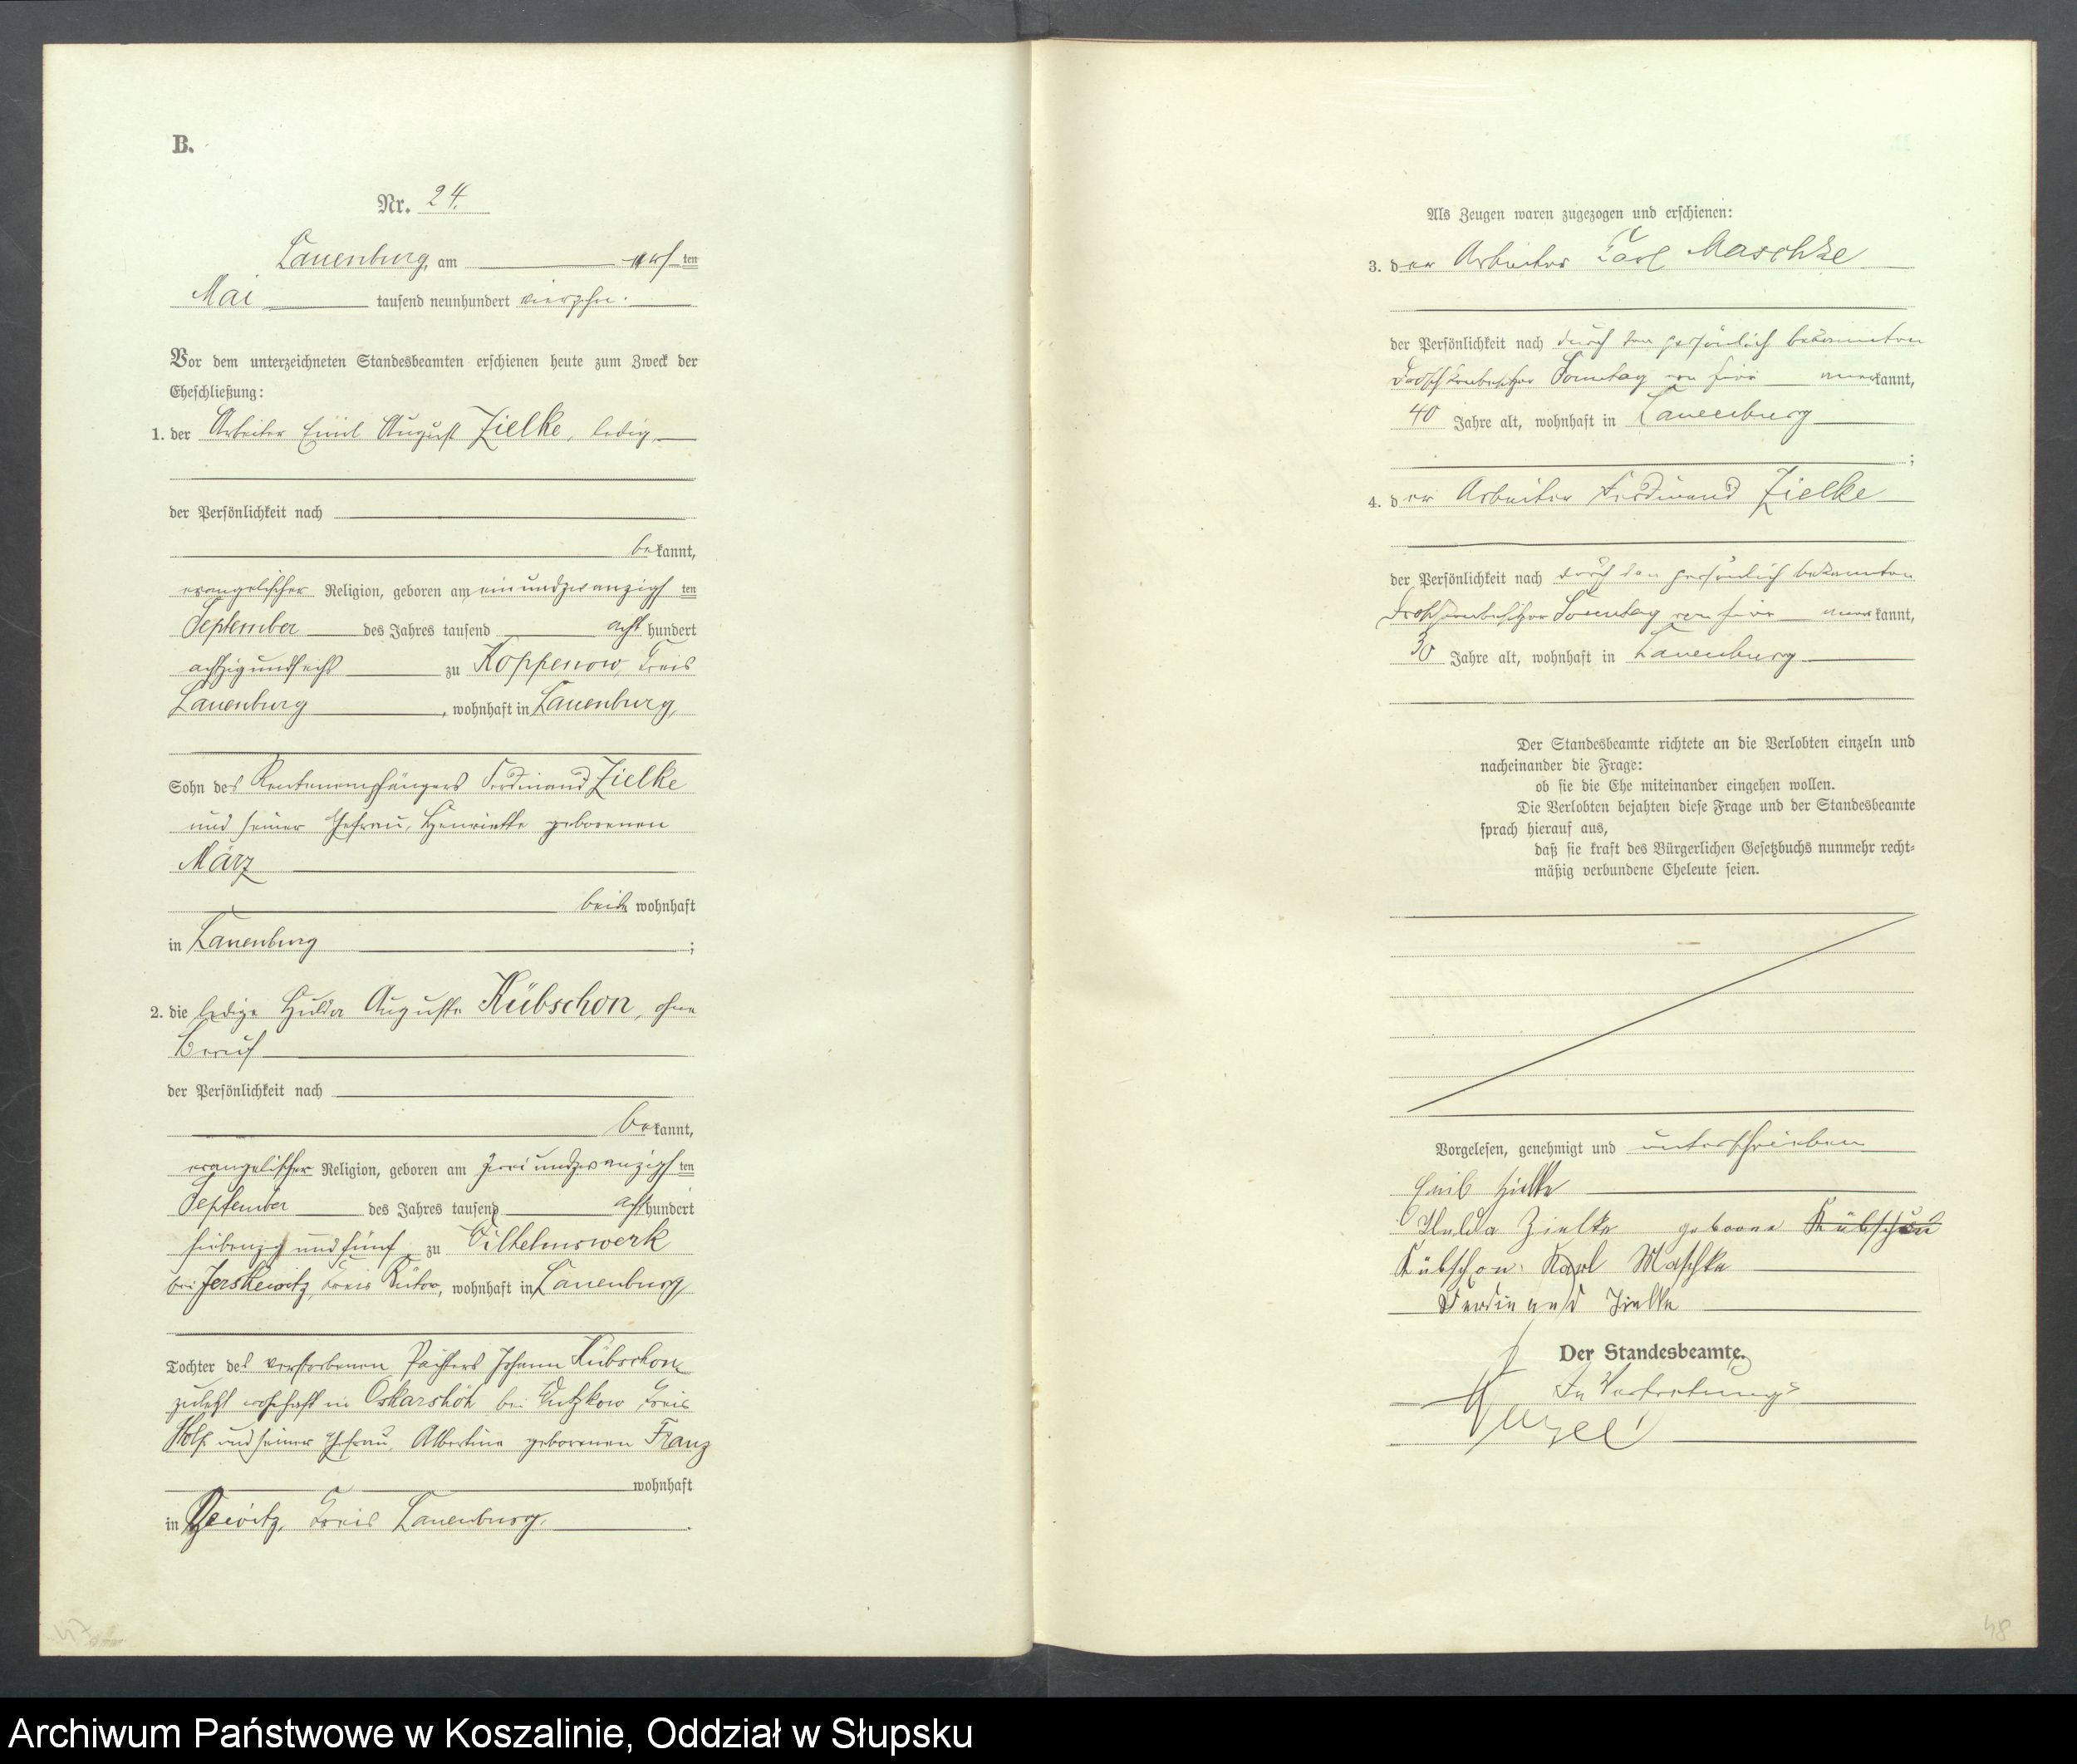 B.
Nr. 24.
Lauenburg, am ersten
Mai tausend neunhundert vierzehn.
Vor dem unterzeichneten Standesbeamten erschienen heute zum Zweck der
Eheschließung:
1. der Arbeiter Emil August Zielke, ledig,
der Persönlichkeit nach
bekannt,
evangelischer Religion, geboren am einundzwanzigsten
September des Jahres tausend acht hundert
achtzigundsechs zu Koppenow, Kreis
Lauenburg, wohnhaft in Lauenburg,
Sohn des Rentenempfängers Ferdinand Zielke
und seiner Ehefrau, Henriette geborenen
März
beide wohnhaft
in Lauenburg;
2. die ledige Hulda Auguste Kübschon, ohne
Beruf
der Persönlichkeit nach
bekannt,
evangelischer Religion, geboren am zweiundzwanzigsten
September des Jahres tausend acht hundert
siebenzig und fünf zu Wilhelmswerk
bei Jerskewitz, Kreis Bütow, wohnhaft in Lauenburg,
Tochter des verstorbenen Pächters Johann Kübschon
zuletzt wohnhaft in Oskarshöh bei Wutzkow, Kreis
Stolp und seiner Ehefrau, Albertine geborenen Franz
wohnhaft
in Kreis Lauenburg.
47
Als Zeugen waren zugezogen und erschienen:
3. der Arbeiter Carl Maschke
der Persönlichkeit nach durch den persönlich bekannten
Droschkenbesitzer Sonntag von hier anerkannt,
40 Jahre alt, wohnhaft in Lauenburg
;
4. der Arbeiter Ferdinand Zielke
der Persönlichkeit nach durch den persönlich bekannten
Droschkenbesitzer Sonntag von hier anerkannt,
30 Jahre alt, wohnhaft in Lauenburg
Der Standesbeamte richtete an die Verlobten einzeln und
nacheinander die Frage:
ob sie die Ehe miteinander eingehen wollen.
Die Verlobten bejahten diese Frage und der Standesbeamte
sprach hierauf aus,
daß sie kraft des Bürgerlichen Gesetzbuchs nunmehr recht-
mäßig verbundene Eheleute seien.
Vorgelesen, genehmigt und unterschrieben
Emil Zielke
Hulda Zielke geborne Kübschon
Kübschon. Karl Maschke
Ferdinand Zielke
Der Standesbeamte.
In Vertretung:
48
Archiwum Państwowe w Koszalinie, Oddział w Słupsku